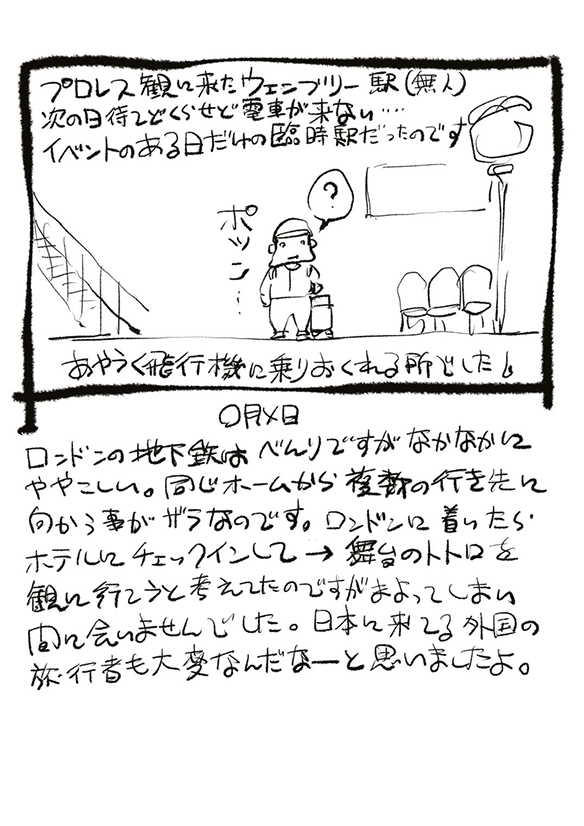 プロレス観に来たウェンブリー駅(無人)
次の日待てどくらせど電車が来ない…
イベントのある日だけの臨時駅だったのです
?
ポツン…
あやうく飛行機に乗りおくれる所でした
〇月×日
ロンドンの地下鉄はべんりですがなかなかに
ややこしい。同じホームから複数の行き先に
向かう事がザラなのです。ロンドンに着いたら
ホテルにチェックインして→舞台のトトロを
観に行こうと考えてたのですがまよってしまい
間に会いませんでした。日本に来てる外国の
旅行者も大変なんだなーと思いましたよ。